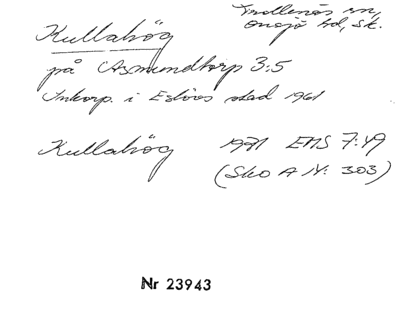 Kullahög
Trollenäs sn,
Onsjö hd, Sk.
på Asmundtorp 3:5
Inkorp. i Eslövs stad 1961
Kullahög 1971 EMS 7:49
(Sko A IV: 303)
Nr 23943